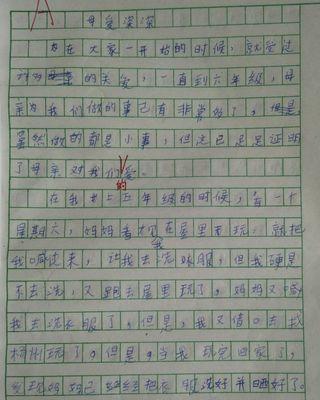 母爱深深
在大家一开始的时候，就受过
的关爱，一直到六年级，母
亲为我们做的事已有非常多了，但是，
虽然做的都是小事，但这已足足证明
了母亲对我们的爱。
在我上五年级的时候，有一个
星期六，妈妈看我在屋里玩，就把
我喊过来，让我去洗衣服，但我硬是
不去洗，又跑去屋里玩了，妈妈又喊
我去洗衣服了，但是，我又借口去找
玩了。但是，当我玩完回家了，
发现妈妈已经把衣服洗好并晒好了。